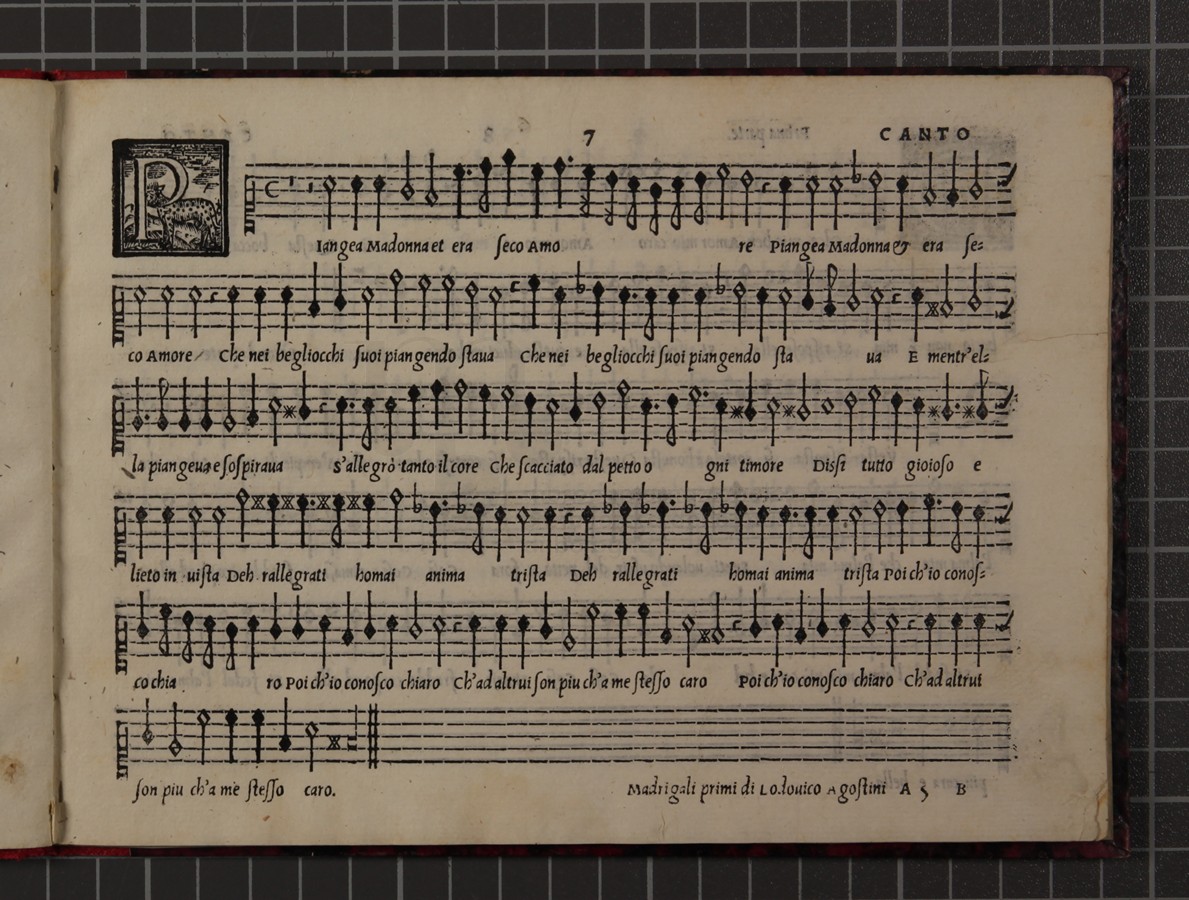 7 CANTO
P Iangea Madonna et era seco Amo re Piangea Madonna & era se=
co Amore Che nei begliocchi suoi piangendo staua Che nei begliocchi suoi piangendo sta ua E mentr'el=
la piangeua e sospiraua S'allegrò tanto il core Che scacciato dal petto o gni timore Dissi tutto gioioso e
lieto in uista Deh rallegrati homai anima trista Deh rallegrati homai anima trista Poi ch'io conos=
co chia ro Poi ch'io conosco chiaro Ch'ad altrui son piu ch'a me stesso caro Poi ch'io conosco chiaro Ch'ad altrui
son piu ch'a me stesso caro.
Madrigali primi di Lodouico Agostini A 5 B